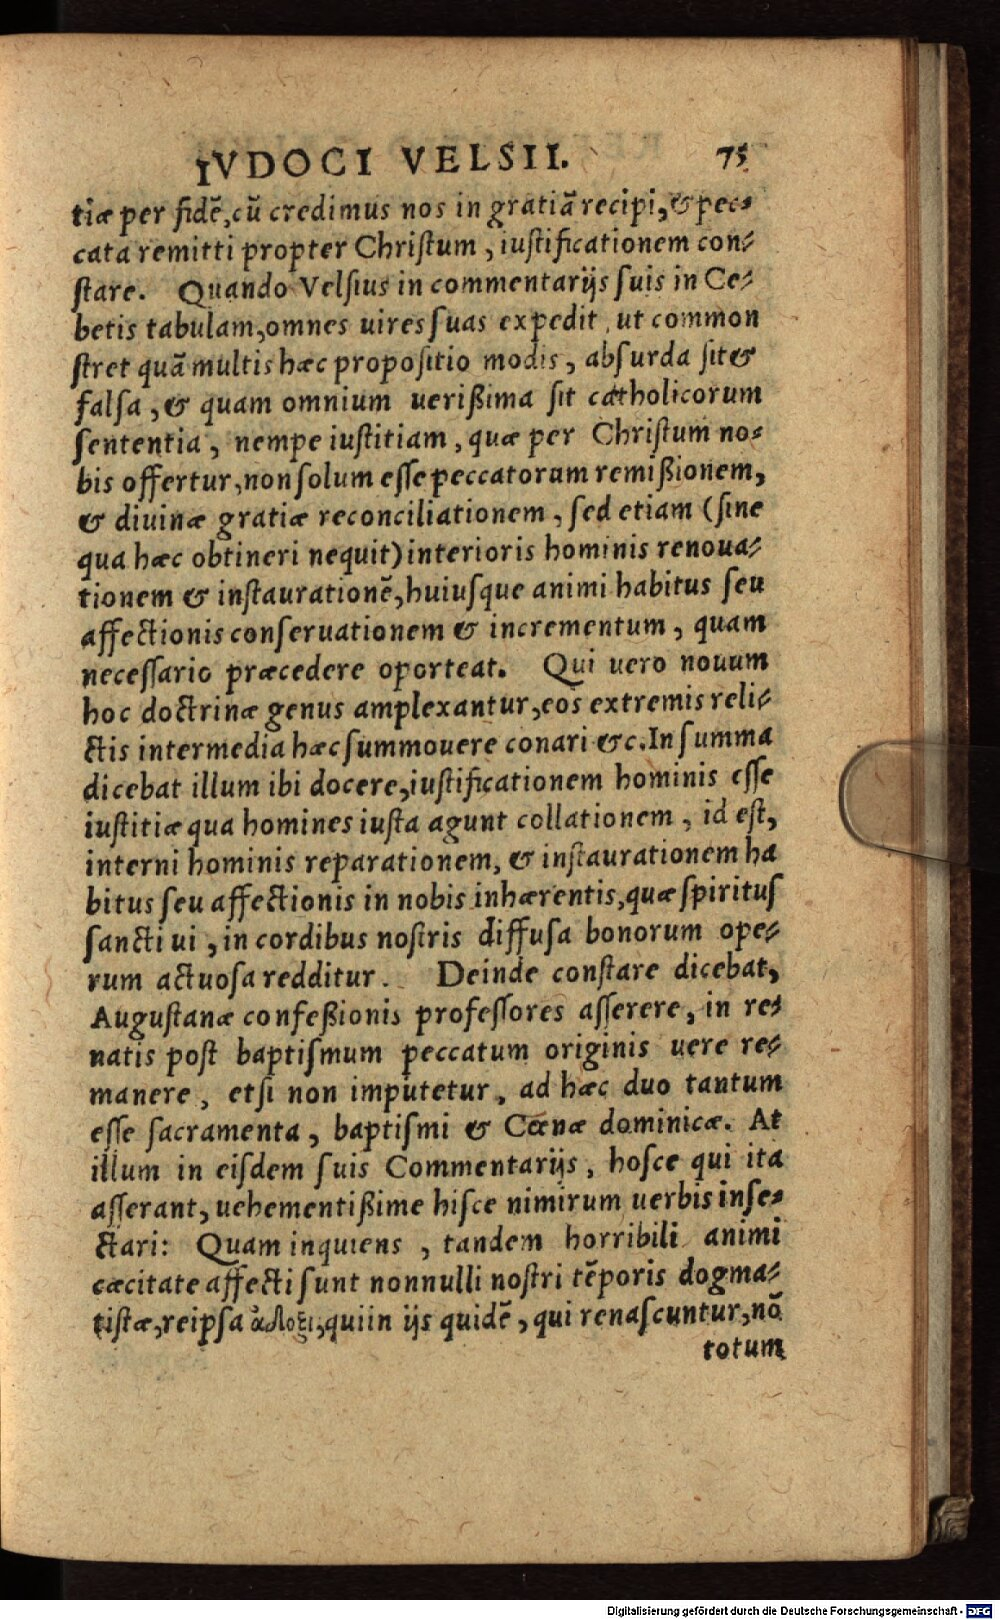 IVDOCI VELSII. 75
tiæ per fidē, cū credimus nos in gratiā recipi, & pec-
cata remitti propter Christum, iustificationem con-
stare. Quando Velsius in commentarijs suis in Ce-
betis tabulam, omnes uires suas expedit, ut common
stret quā multis hæc propositio modis, absurda sit &
falsa, & quam omnium uerißima sit catholicorum
sententia, nempe iustitiam, quæ per Christum no-
bis offertur, non solum esse peccatorum remißionem,
& diuinæ gratiæ reconciliationem, sed etiam (sine
qua hæc obtineri nequit) interioris hominis renoua-
tionem & instaurationē, huiusque animi habitus seu
affectionis conseruationem & incrementum, quam
necessario præcedere oporteat. Qui uero nouum
hoc doctrinæ genus amplexantur, eos extremis reli-
ctis intermedia hæc summouere conari &c. In summa
dicebat illum ibi docere, iustificationem hominis esse
iustitiæ qua homines iusta agunt collationem, id est,
interni hominis reparationem, & instaurationem ha
bitus seu affectionis in nobis inhærentis, quæ spiritus
sancti ui, in cordibus nostris diffusa bonorum ope-
rum actuosa redditur. Deinde constare dicebat,
Augustanæ confeßionis professores asserere, in re-
natis post baptismum peccatum originis uere re-
manere, etsi non imputetur, ad hæc duo tantum
esse sacramenta, baptismi & Cœnæ dominicæ. At
illum in eisdem suis Commentarijs, hosce qui ita
asserant, uehementißime hisce nimirum uerbis inse-
ctari: Quam inquiens, tandem horribili animi
cæcitate affecti sunt nonnulli nostri tēporis dogma-
tistæ, reipsa ἄδοξοι, qui in ijs quidē, qui renascuntur, nō
totum
Digitalisierung gefördert durch die Deutsche Forschungsgemeinschaft - DFG